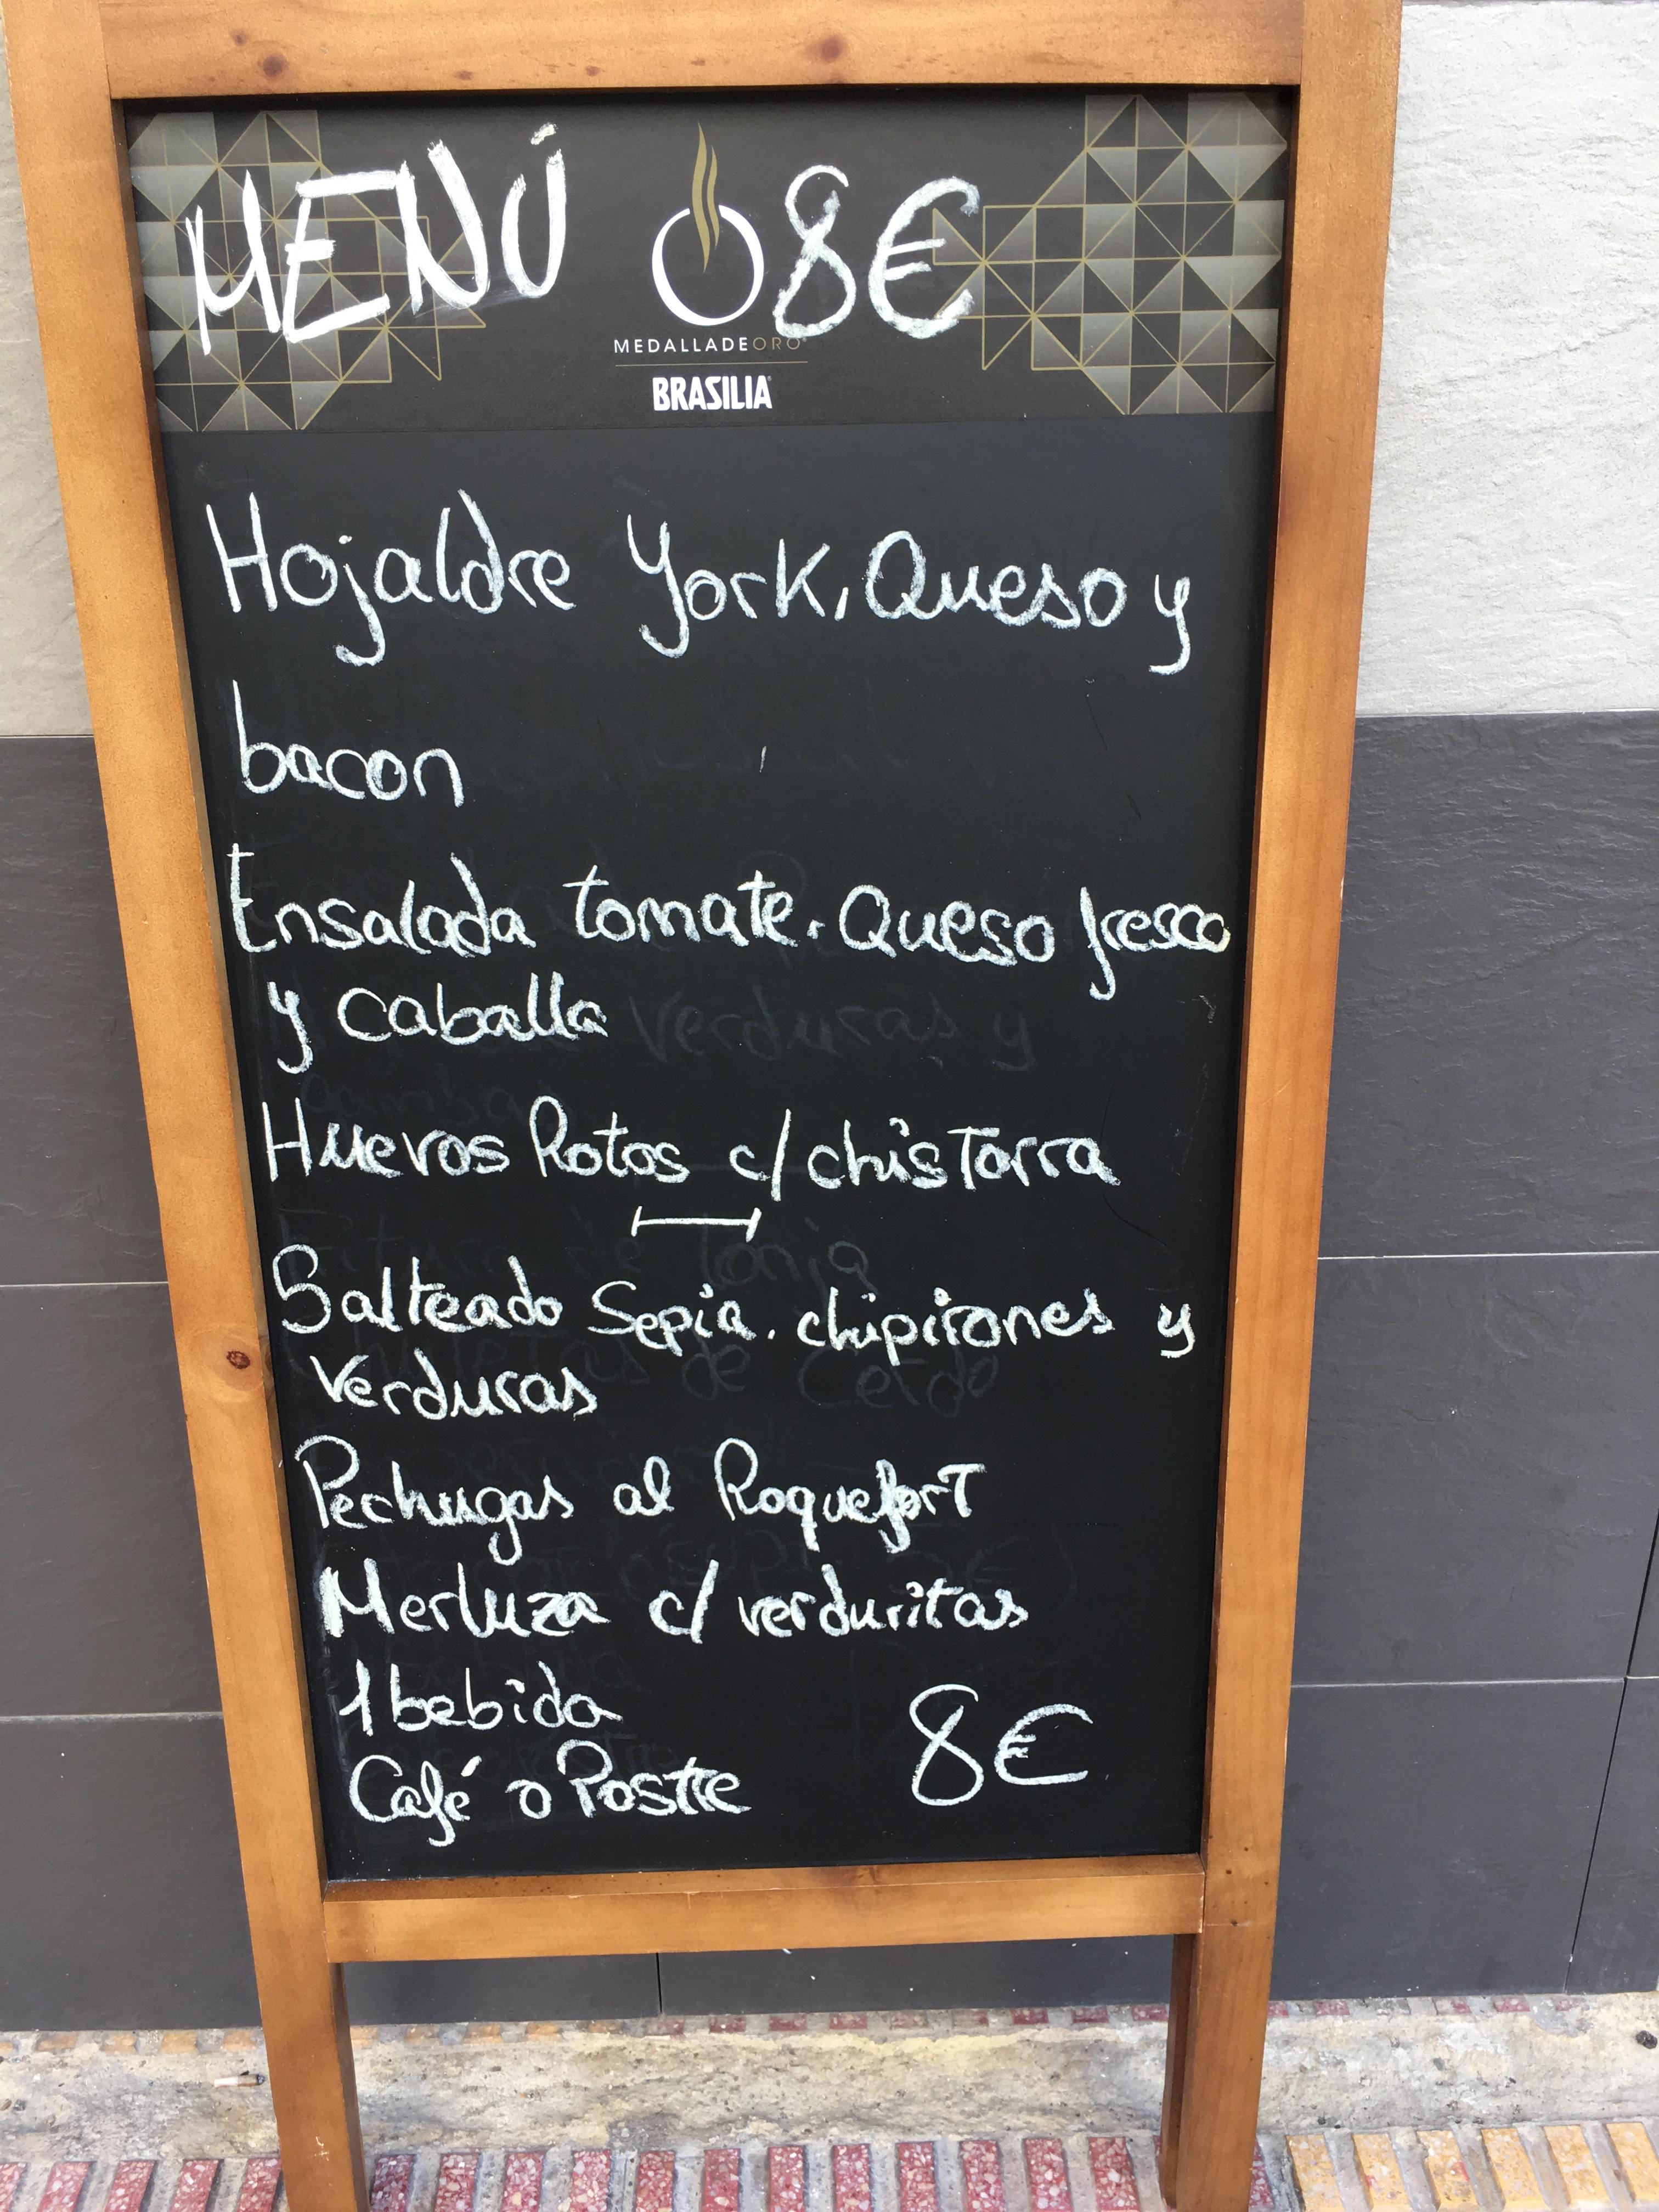 MENÚ 8€
MEDALLADEORO
BRASILIA
Hojaldre York, Queso y
bacon
Ensalada tomate. Queso fresco
y caballa
Huevos Rotos c/ chisTorra
Salteado Sepia. chipirones y
verduras
Pechugas al RoqueforT
Merluza c/ verduritas
1 bebida
8€
Café o Postre